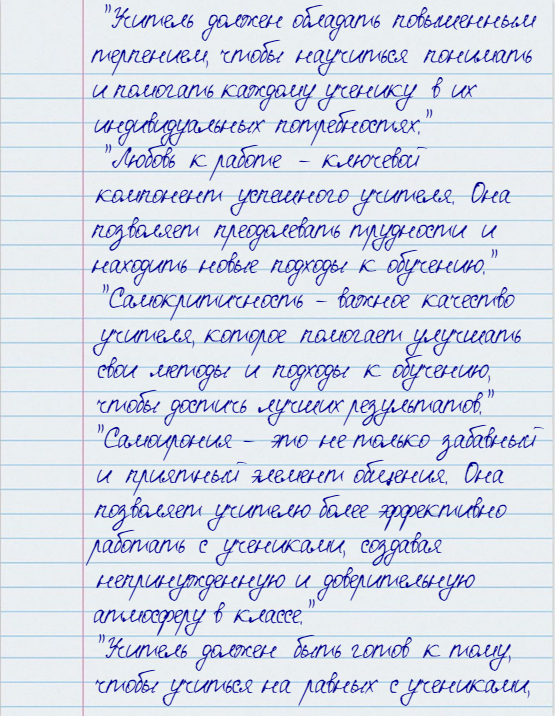 "Учитель должен обладать повышенным
терпением, чтобы научиться понимать
и помогать каждому ученику в их
индивидуальных потребностях."
"Любовь к работе - ключевой
компонент успешного учителя. Она
позволяет преодолевать трудности и
находить новые подходы к обучению."
"Самокритичность - важное качество
учителя, которое помогает улучшать
свои методы и подходы к обучению,
чтобы достичь лучших результатов."
"Самоирония - это не только забавный
и приятный элемент общения. Она
позволяет учителю более эффективно
работать с учениками, создавая
непринужденную и доверительную
атмосферу в классе."
"Учитель должен быть готов к тому,
чтобы учиться на равных с учениками,